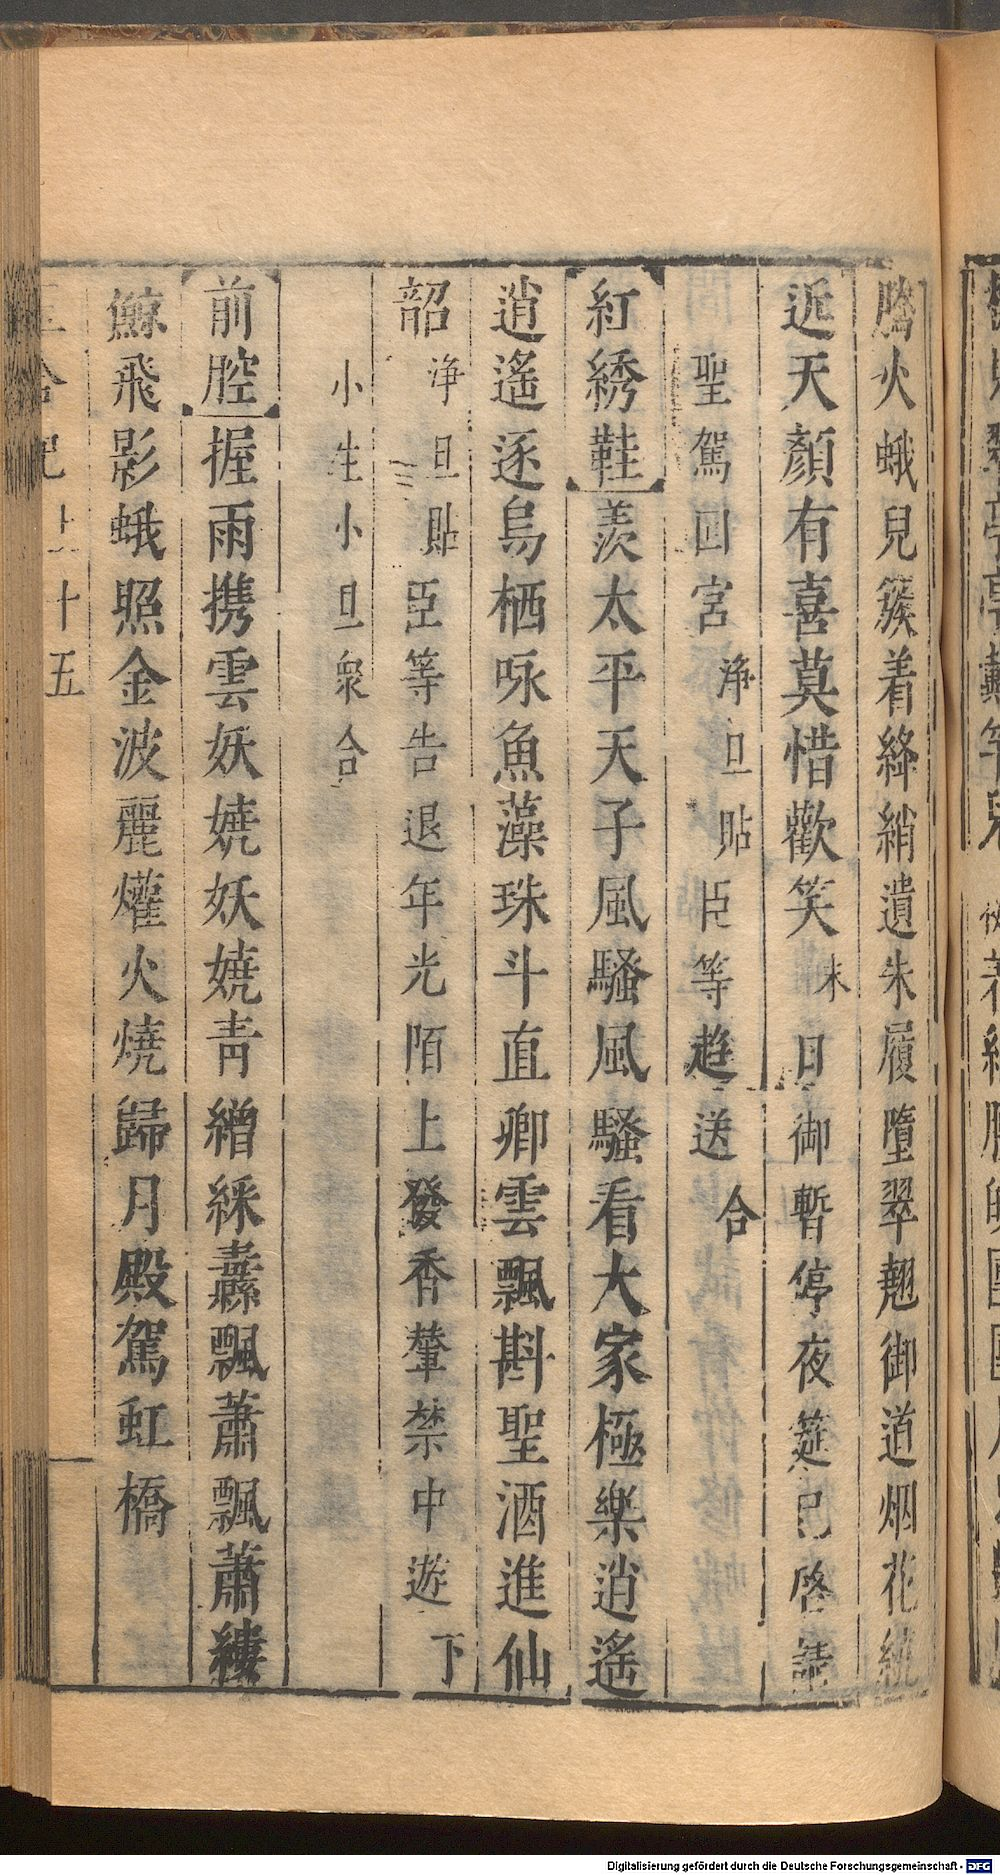 騰火蛾兒簇着絳綃遺朱履墮翠翹御道烟花統
近天顏有喜莫惜歡笑末日御暫停夜筵已啓請
聖駕回宮淨旦貼臣等趨送合
紅綉鞋羨太平天子風騷風騷看大家極樂逍遙
逍遙逐烏栖咏魚藻珠斗直卿雲飄斟聖酒進仙
韶淨旦貼臣等告退年光陌上發香輦禁中遊下
小生小旦衆合
前腔握雨携雲妖嬈妖嬈靑繒綵纛飄蕭飄蕭縷
鯨飛影蛾照金波麗爟火燒歸月殿駕虹橋
上十五
Digitalisierung gefördert durch die Deutsche Forschungsgemeinschaft - DFG